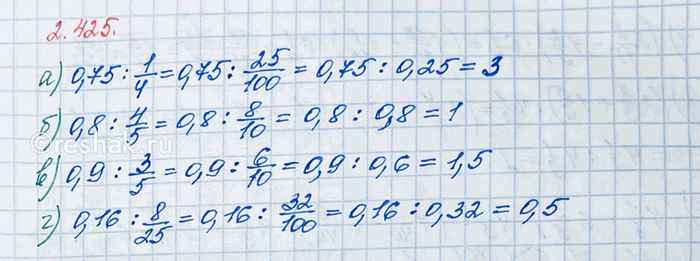 2.425.
а) 0,75 : 1/4 = 0,75 : 25/100 = 0,75 : 0,25 = 3
б) 0,8 : 4/5 = 0,8 : 8/10 = 0,8 : 0,8 = 1
в) 0,9 : 3/5 = 0,9 : 6/10 = 0,9 : 0,6 = 1,5
г) 0,16 : 8/25 = 0,16 : 32/100 = 0,16 : 0,32 = 0,5
©reshak.ru